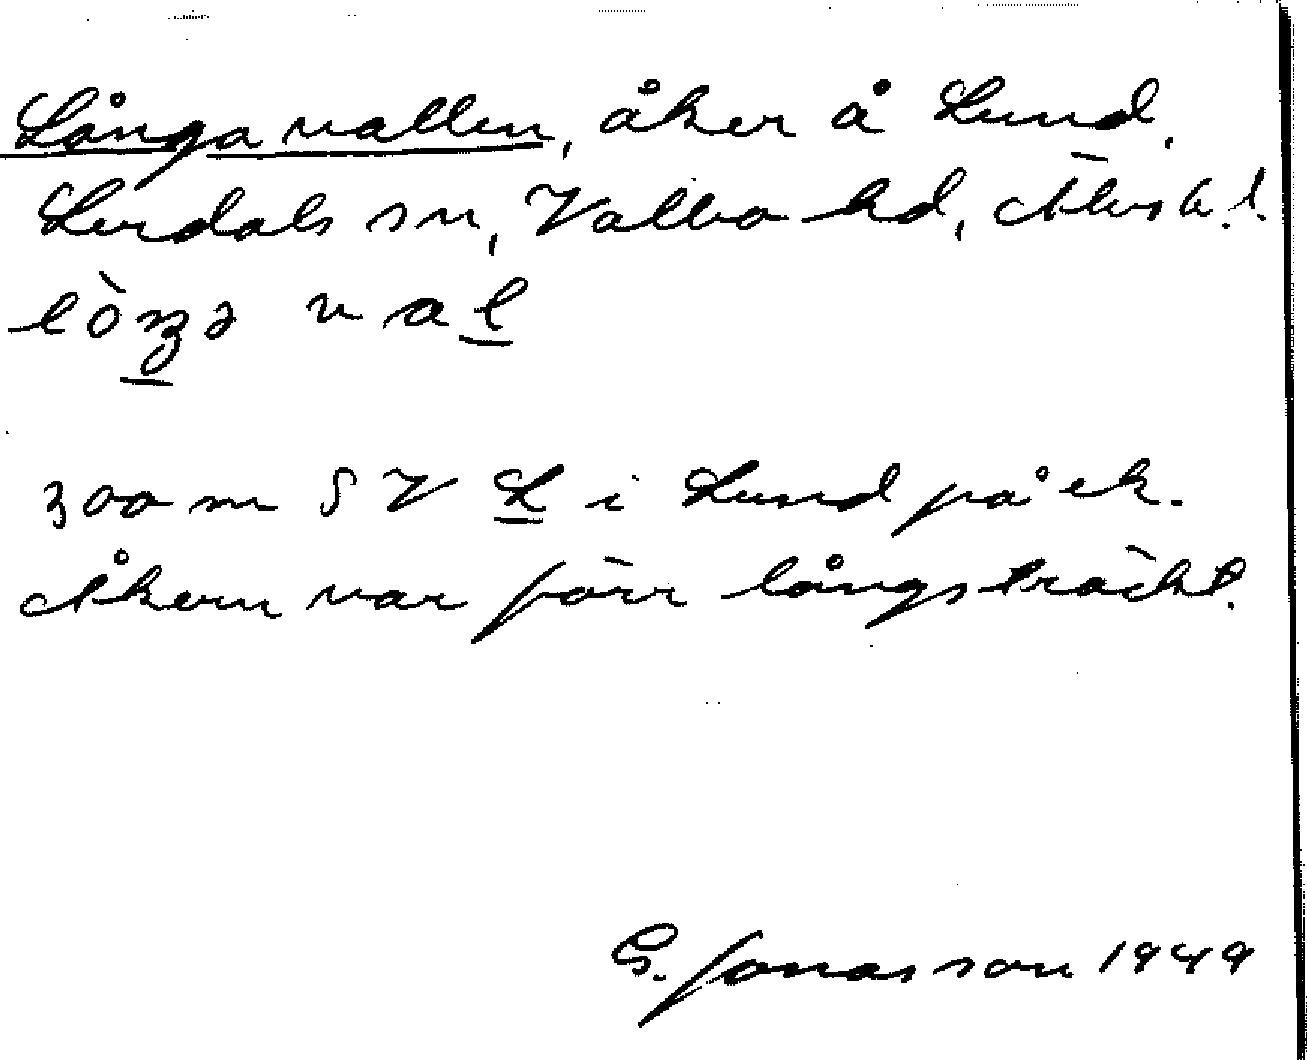 Långa vallen, åker å Lund,
Lerdals sn, Valbo hd, Älvsb. l.
300 m SV L i Lund på ek.
Åkern var förr långsträckt.
G. Jonasson 1949